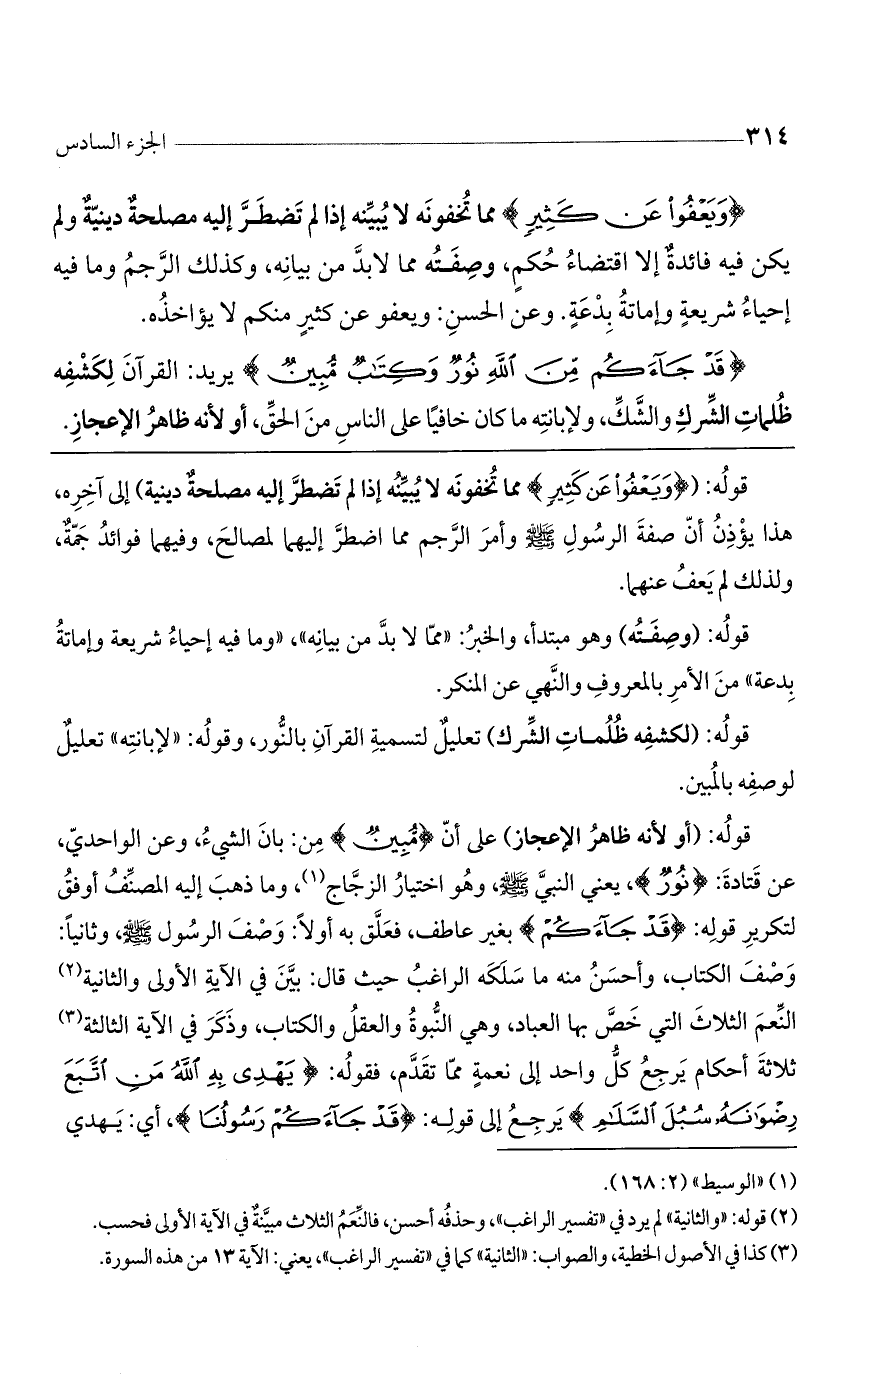 ٣١٤ الجزء السادس
﴿وَيَعْفُواْ عَن كَثِيرٍ﴾ مما تُخفونَه لا يُبيِّنه إذا لم تَضطَرَّ إليه مصلحةٌ دينيّةٌ ولم
يكن فيه فائدةٌ إلا اقتضاءُ حُكمٍ، وصِفَتُه مما لابدَّ من بيانِه، وكذلك الرَّجمُ وما فيه
إحياءُ شريعةٍ وإماتةُ بِدْعَةٍ. وعن الحسنِ: ويعفو عن كثيرٍ منكم لا يؤاخذُه.
﴿قَدْ جَآءَكُم مِّنَ ٱللَّهِ نُورٌ وَكِتَٰبٌ مُّبِينٌ﴾ يريد: القرآنَ لِكَشْفِه
ظُلماتِ الشِّركِ والشَّكِّ، ولإبانتِه ما كان خافيًا على الناسِ منَ الحقِّ، أو لأنه ظاهرُ الإعجازِ.
قولُه: (﴿وَيَعْفُواْ عَن كَثِيرٍ﴾ مما تُخفونَه لا يُبيِّنُه إذا لم تَضطرَّ إليه مصلحةٌ دينية) إلى آخِرِه،
هذا يؤْذِنُ أنّ صفةَ الرسُولِ ﷺ وأمرَ الرَّجم مما اضطرَّ إليهما لمصالحَ، وفيهما فوائدُ جَمّةٌ،
ولذلك لم يَعفُ عنهما.
قولُه: (وصِفَتُه) وهو مبتدأ، والخبرُ: «ممّا لا بدَّ من بيانِه»، «وما فيه إحياءُ شريعة وإماتةُ
بِدعة» منَ الأمرِ بالمعروفِ والنَّهي عن المنكر.
قولُه: (لكشفِه ظُلُماتِ الشِّرك) تعليلٌ لتسميةِ القرآنِ بالنُّور، وقولُه: «لإبانتِه» تعليلٌ
لوصفِه بالمُبين.
قولُه: (أو لأنه ظاهرُ الإعجاز) على أنّ ﴿مُّبِينٌ﴾ مِن: بانَ الشيءُ، وعن الواحديّ،
عن قَتادةَ: ﴿نُورٌ﴾، يعني النبيَّ ﷺ، وهُو اختيارُ الزجّاج(١)، وما ذهبَ إليه المصنِّفُ أوفقُ
لتكريرِ قولِه: ﴿قَدْ جَآءَكُمْ﴾ بغير عاطف، فعَلَّق به أولاً: وَصْفَ الرسُول ﷺ، وثانياً:
وَصْفَ الكتاب، وأحسَنُ منه ما سَلَكَه الراغبُ حيث قال: بيَّنَ في الآيةِ الأولى والثانية(٢)
النِّعمَ الثلاثَ التي خَصَّ بها العباد، وهي النُّبوةُ والعقلُ والكتاب، وذَكَرَ في الآية الثالثة(٣)
ثلاثةَ أحكام يَرجِعُ كلُّ واحد إلى نعمةٍ ممّا تقَدَّم، فقولُه: ﴿يَهْدِى بِهِ ٱللَّهُ مَنِ ٱتَّبَعَ
رِضْوَٰنَهُۥ سُبُلَ ٱلسَّلَٰمِ﴾ يَرجِعُ إلى قولِه: ﴿قَدْ جَآءَكُمْ رَسُولُنَا﴾، أي: يَهدي
(١) «الوسيط» (٢: ١٦٨).
(٢) قوله: «والثانية» لم يرد في «تفسير الراغب»، وحذفُه أحسن، فالنِّعَمُ الثلاث مبيَّنةٌ في الآية الأولى فحسب.
(٣) كذا في الأصول الخطية، والصواب: «الثانية» كما في «تفسير الراغب»، يعني: الآية ١٣ من هذه السورة.